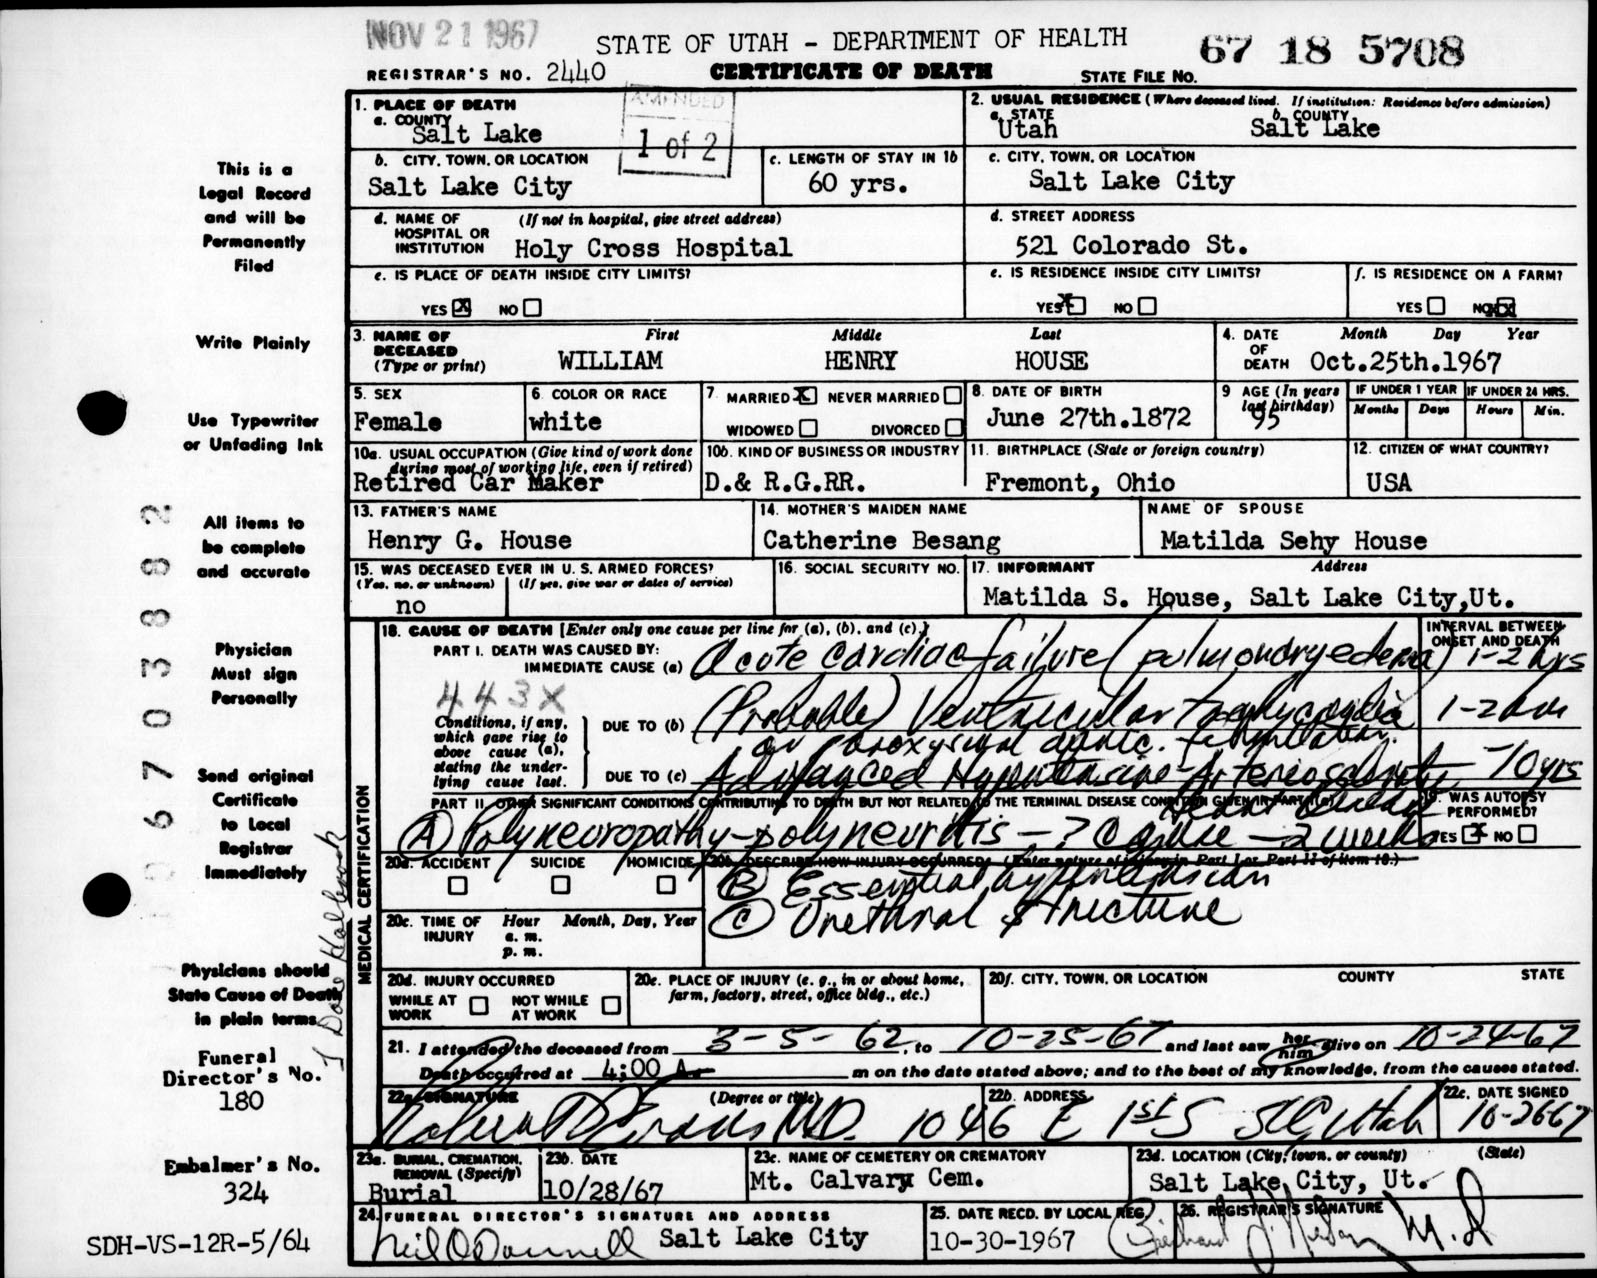 NOV 21 1967
STATE OF UTAH - DEPARTMENT OF HEALTH
67 18 5708
REGISTRAR'S NO. 2440
CERTIFICATE OF DEATH
STATE FILE NO.
AMENDED
1 of 2
1. PLACE OF DEATH
a. COUNTY
Salt Lake
2. USUAL RESIDENCE (Where deceased lived. If institution: Residence before admission)
a. STATE
Utah
b. COUNTY
Salt Lake
b. CITY, TOWN, OR LOCATION
Salt Lake City
c. LENGTH OF STAY IN 1b
60 yrs.
c. CITY, TOWN, OR LOCATION
Salt Lake City
d. NAME OF HOSPITAL OR INSTITUTION
(If not in hospital, give street address)
Holy Cross Hospital
d. STREET ADDRESS
521 Colorado St.
e. IS PLACE OF DEATH INSIDE CITY LIMITS?
YES X NO
e. IS RESIDENCE INSIDE CITY LIMITS?
YES X NO
f. IS RESIDENCE ON A FARM?
YES NO XX
3. NAME OF DECEASED (Type or print)
First Middle Last
WILLIAM HENRY HOUSE
4. DATE OF DEATH
Month Day Year
Oct.25th.1967
5. SEX
Female
6. COLOR OR RACE
white
7. MARRIED X NEVER MARRIED
WIDOWED DIVORCED
8. DATE OF BIRTH
June 27th.1872
9 AGE (In years last birthday)
95
IF UNDER 1 YEAR
Months Days
IF UNDER 24 HRS.
Hours Min.
10a. USUAL OCCUPATION (Give kind of work done during most of working life, even if retired)
Retired Car Maker
10b. KIND OF BUSINESS OR INDUSTRY
D.& R.G.RR.
11. BIRTHPLACE (State or foreign country)
Fremont, Ohio
12. CITIZEN OF WHAT COUNTRY?
USA
13. FATHER'S NAME
Henry G. House
14. MOTHER'S MAIDEN NAME
Catherine Besang
NAME OF SPOUSE
Matilda Sehy House
15. WAS DECEASED EVER IN U. S. ARMED FORCES?
(Yes, no, or unknown) (If yes, give war or dates of service)
no
16. SOCIAL SECURITY NO.
17. INFORMANT Address
Matilda S. House, Salt Lake City,Ut.
MEDICAL CERTIFICATION
18. CAUSE OF DEATH [Enter only one cause per line for (a), (b), and (c).]
INTERVAL BETWEEN ONSET AND DEATH
PART I. DEATH WAS CAUSED BY:
IMMEDIATE CAUSE (a) Acute cardiac failure (pulmonary edema) 1-2 hrs
443X
Conditions, if any, which gave rise to above cause (a), stating the underlying cause last.
DUE TO (b) (Probable) Ventricular tachycardia 1-2 hrs
or paroxysmal auric. fibrillation.
DUE TO (c) Advanced Hypertensive-Arteriosclerotic -10 yrs
Heart Disease
PART II. OTHER SIGNIFICANT CONDITIONS CONTRIBUTING TO DEATH BUT NOT RELATED TO THE TERMINAL DISEASE CONDITION GIVEN IN PART I(a)
(A) Polyneuropathy-polyneuritis - ? Cause - 2 weeks
19. WAS AUTOPSY PERFORMED?
YES X NO
20a. ACCIDENT SUICIDE HOMICIDE
20b. DESCRIBE HOW INJURY OCCURRED. (Enter nature of injury in Part I or Part II of item 18.)
(B) Essential hypertension
(C) Urethral stricture
20c. TIME OF INJURY Hour Month, Day, Year
a. m.
p. m.
20d. INJURY OCCURRED
WHILE AT WORK NOT WHILE AT WORK
20e. PLACE OF INJURY (e. g., in or about home, farm, factory, street, office bldg., etc.)
20f. CITY, TOWN, OR LOCATION COUNTY STATE
21. I attended the deceased from 3-5-62, to 10-25-67 and last saw her him alive on 10-24-67
Death occurred at 4:00 A. m on the date stated above; and to the best of my knowledge, from the causes stated.
22a. SIGNATURE (Degree or title)
Robert D Evans MD.
22b. ADDRESS
1046 E 1st S SLC Utah
22c. DATE SIGNED
10-26-67
23a. BURIAL, CREMATION, REMOVAL (Specify)
Burial
23b. DATE
10/28/67
23c. NAME OF CEMETERY OR CREMATORY
Mt. Calvary Cem.
23d. LOCATION (City, town, or county) (State)
Salt Lake City, Ut.
24. FUNERAL DIRECTOR'S SIGNATURE AND ADDRESS
Neil O'Donnell Salt Lake City
25. DATE RECD. BY LOCAL REG.
10-30-1967
26. REGISTRAR'S SIGNATURE
M.D
This is a
Legal Record
and will be
Permanently
Filed
Write Plainly
Use Typewriter
or Unfading Ink
All items to
be complete
and accurate
Physician
Must sign
Personally
Send original
Certificate
to Local
Registrar
Immediately
Physicians should
State Cause of Death
in plain terms
Funeral
Director's No.
180
Embalmer's No.
324
SDH-VS-12R-5/64